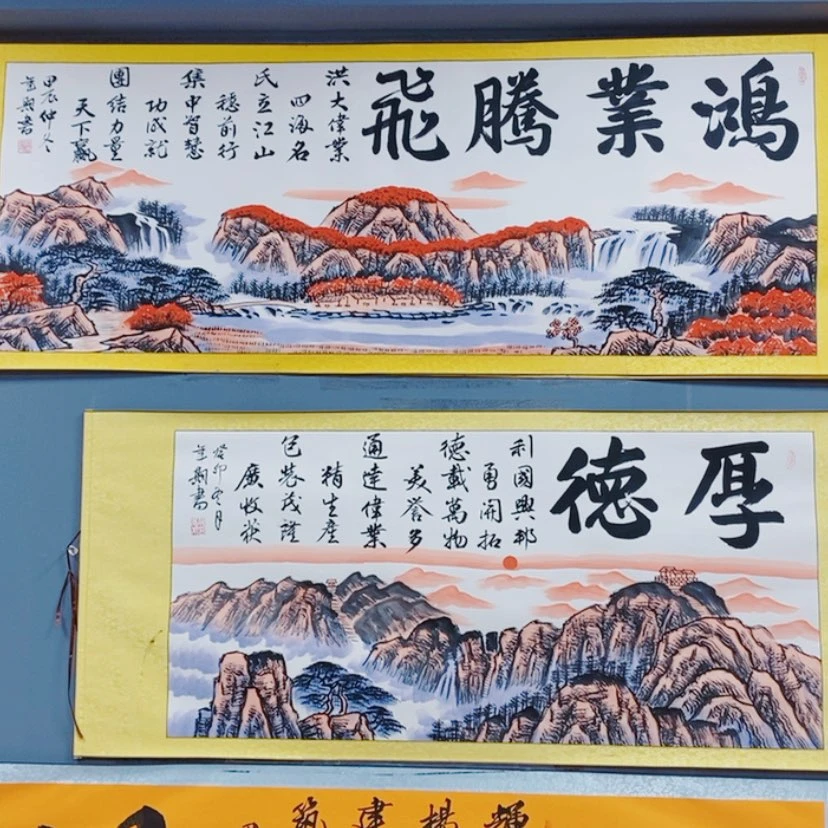 鴻業騰飛
洪大偉業
四海名
氏立江山
穩前行
集中智慧
功成就
團結力量
天下贏
甲辰仲冬
書
厚德
利國興邦
勇開拓
德載萬物
美譽多
通達偉業
精生產
包裝茂
廣收獲
癸卯
書
楊建筑